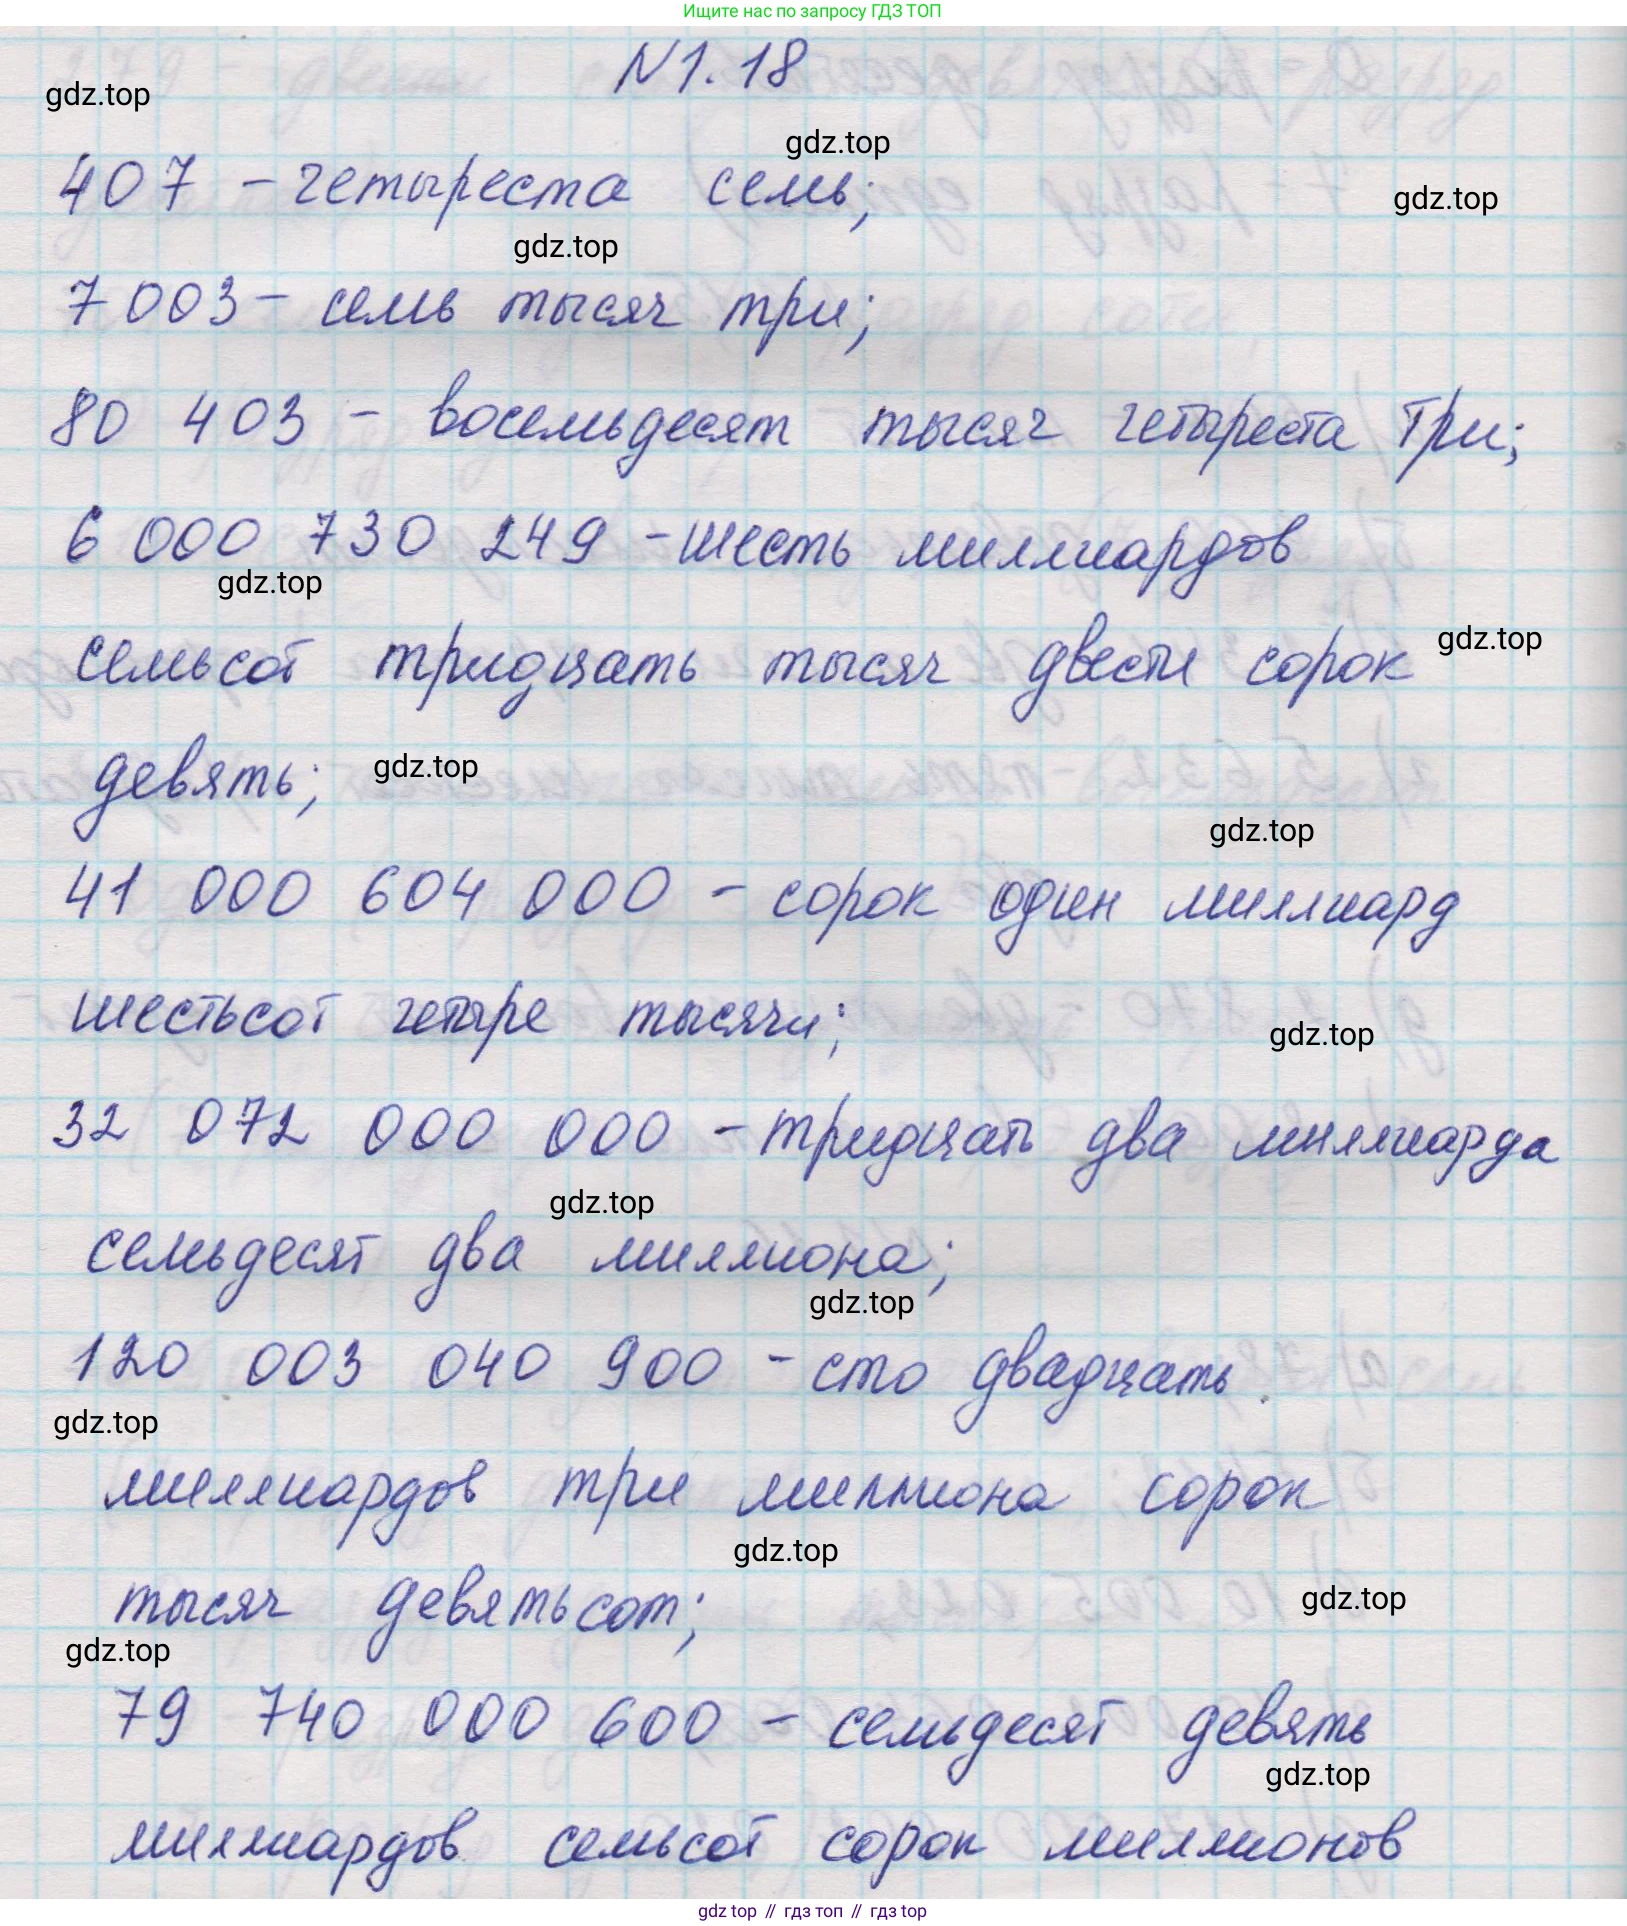 Ищите нас по запросу ГДЗ ТОП
N1.18
gdz.top
gdz.top
407 – четыреста семь;
gdz.top
gdz.top
7 003 – семь тысяч три;
80 403 – восемьдесят тысяч четыреста три;
6 000 730 249 – шесть миллиардов
gdz.top
семьсот тридцать тысяч двести сорок
gdz.top
девять;
gdz.top
gdz.top
41 000 604 000 – сорок один миллиард
шестьсот четыре тысячи;
gdz.top
32 072 000 000 – тридцать два миллиарда
gdz.top
семьдесят два миллиона;
gdz.top
120 003 040 900 – сто двадцать
gdz.top
миллиардов три миллиона сорок
gdz.top
тысяч девятьсот;
gdz.top
gdz.top
79 740 000 600 – семьдесят девять
gdz.top
миллиардов семьсот сорок миллионов
gdz top // гдз топ // гдз top